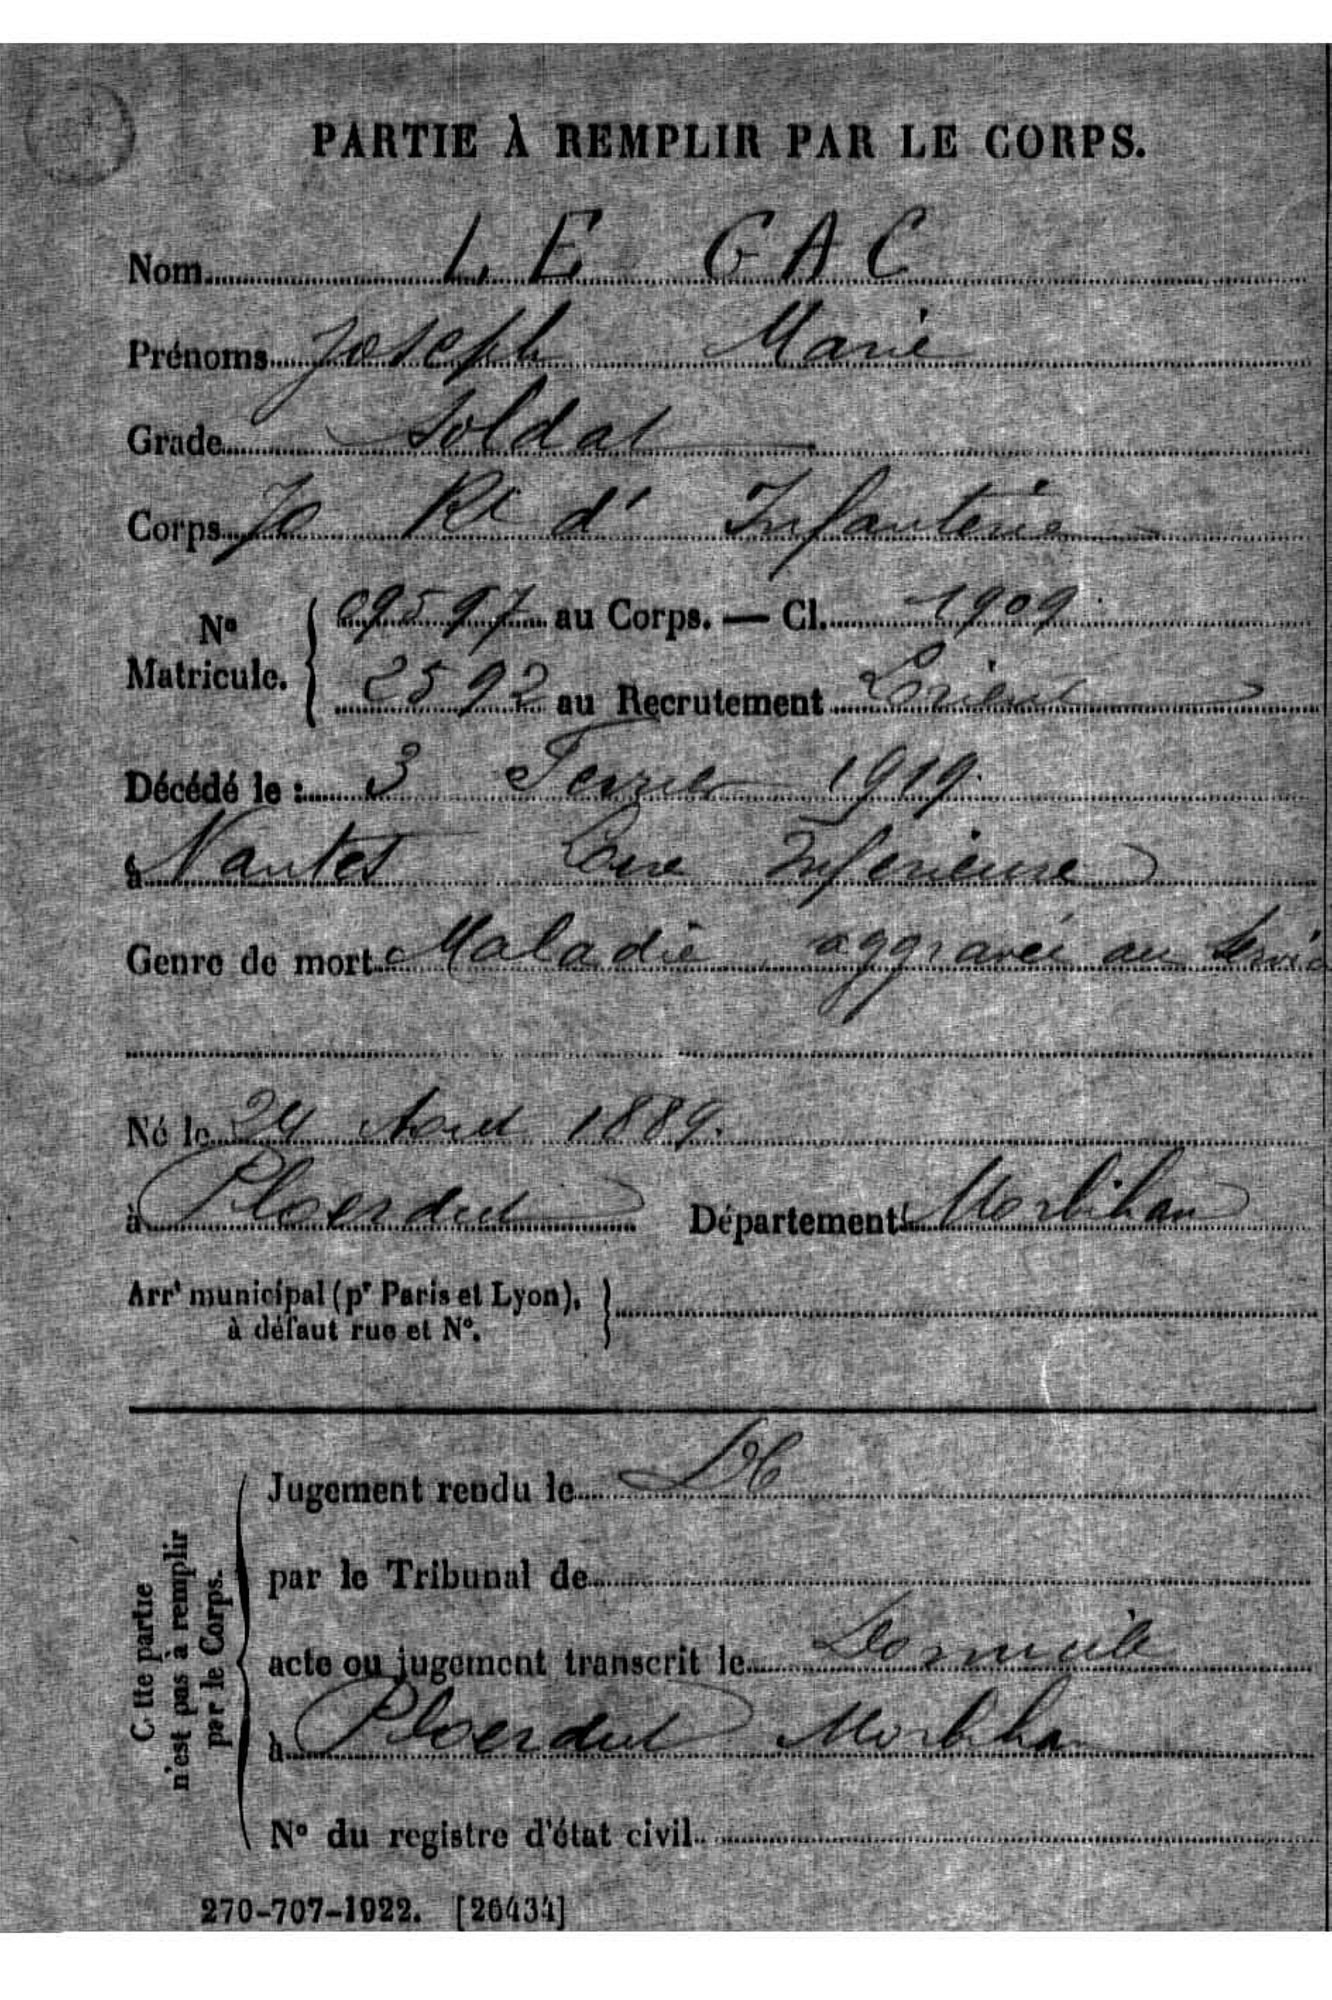 PARTIE À REMPLIR PAR LE CORPS.
Nom LE GAC
Prénoms Joseph Marie
Grade Soldat
Corps 70 Rt d' Infanterie
No Matricule. { 09597 au Corps. — Cl. 1909
2592 au Recrutement Lorient
Décédé le : 3 Fevrier 1919
à Nantes Loire Inferieure
Genre de mort Maladie aggravée au Servic
Né le 24 Aout 1889.
à Ploerdut Département Morbihan
Arrt municipal (pr Paris et Lyon), à défaut rue et No. }
Cette partie n'est pas à remplir par le Corps.
Jugement rendu le
par le Tribunal de
acte ou jugement transcrit le Domicile
à Ploerdut Morbihan
No du registre d'état civil
270-707-1922. [26434]